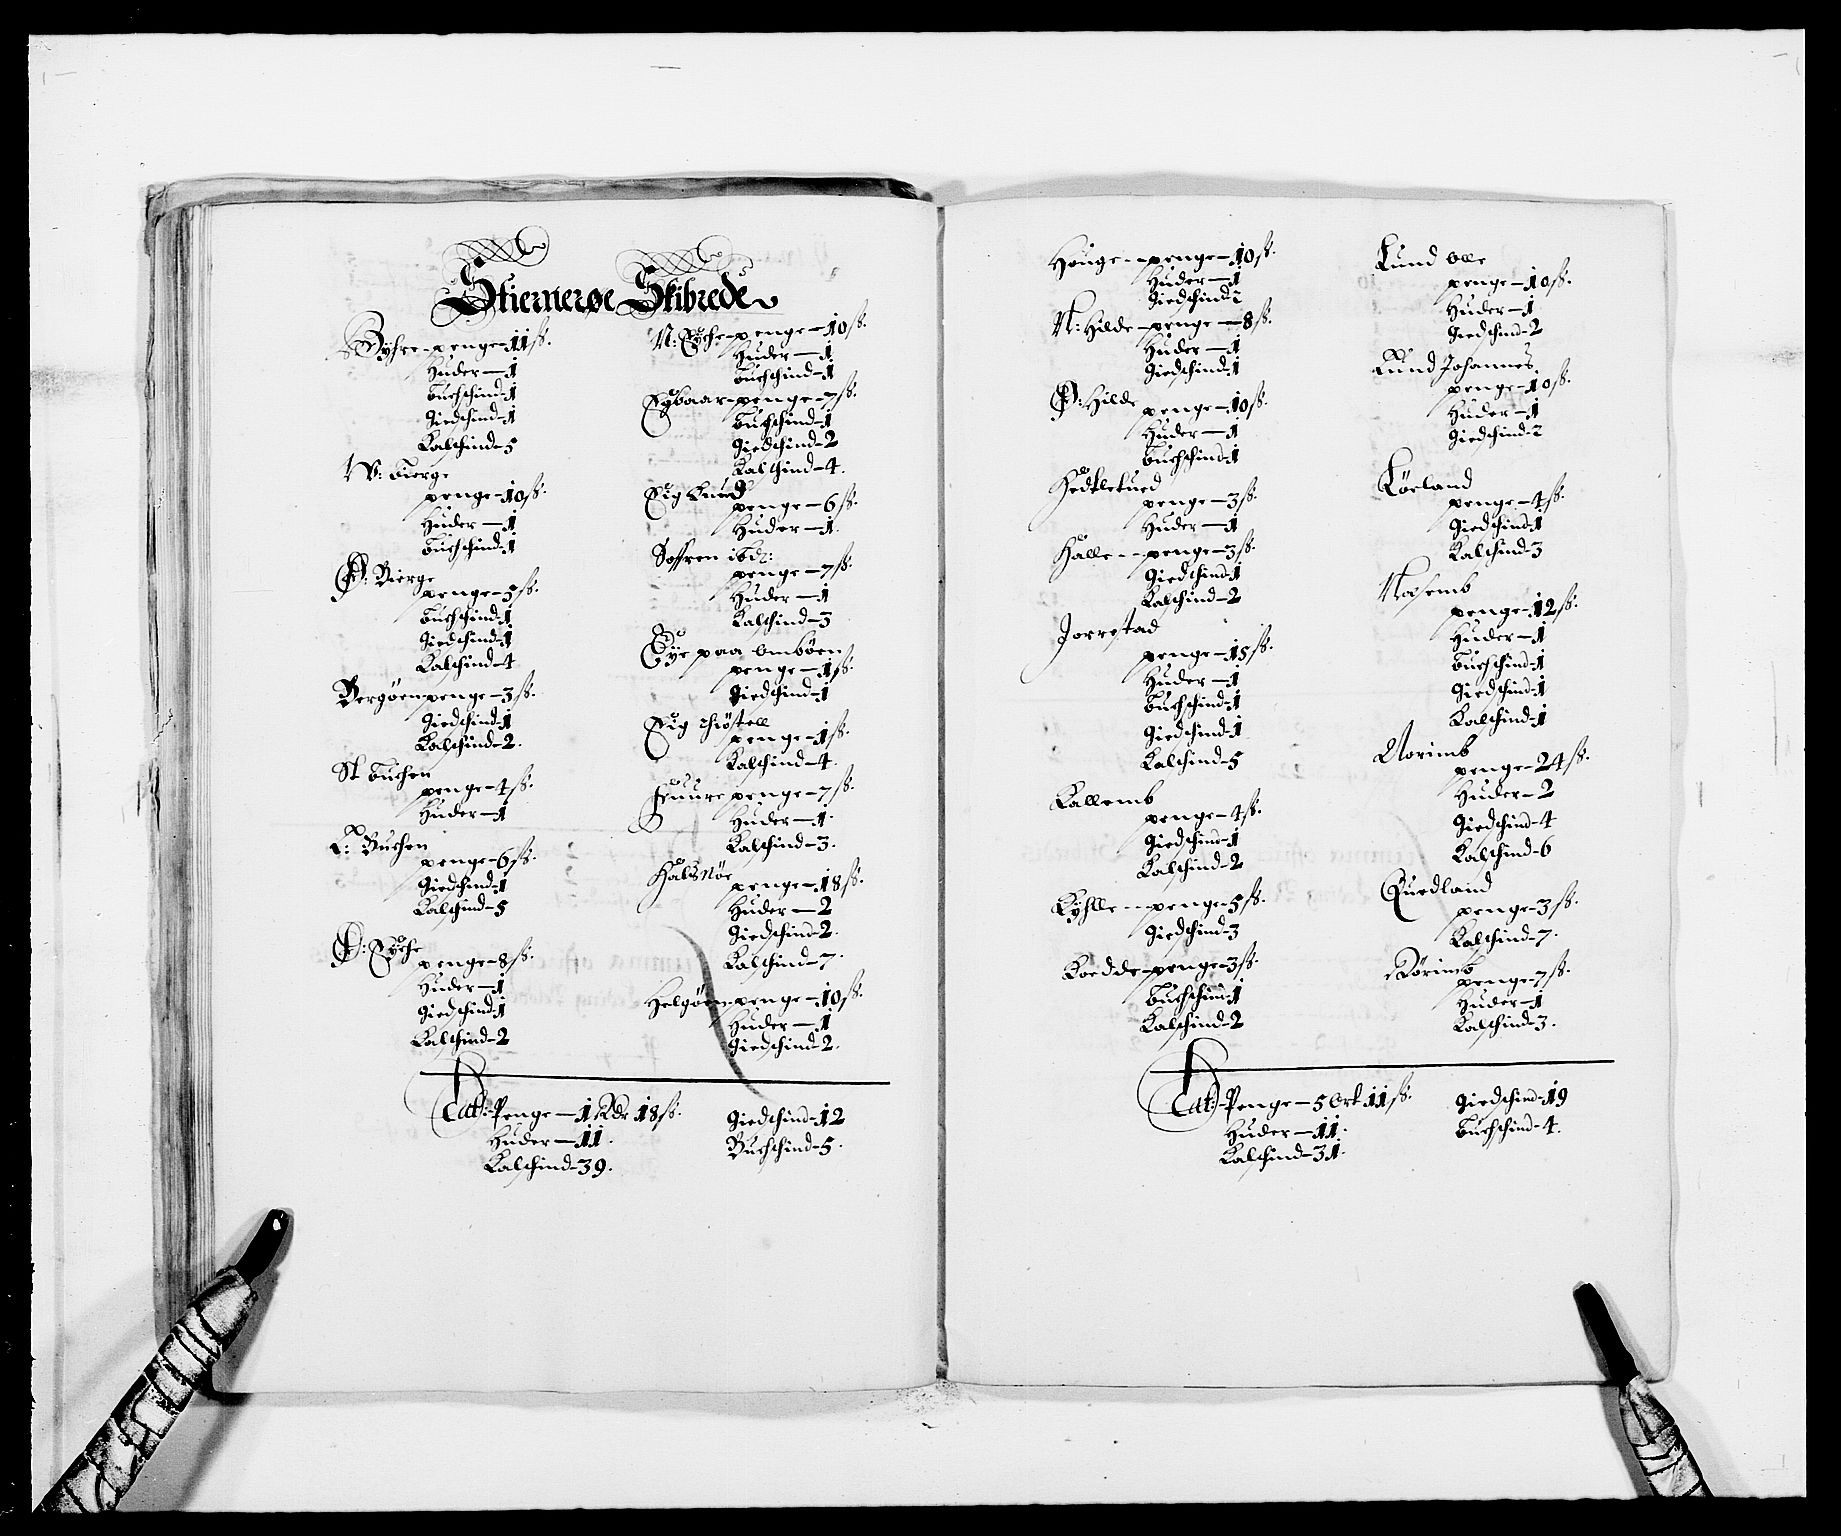 Stiernerøe Skibrede
Byfre - penge - 11 ß.
Huder - 1
Buchschind - 1
Giedschind - 1
Kalschind - 5
W: Bierge
penge - 10 ß.
Huder - 1
Buchschind - 1
Ø: Bierge
penge - 5 ß.
Buchschind - 1
Giedschind - 1
Kalschind - 4
Bergøen penge - 3 ß.
Giedschind - 1
Kalschind - 2.
St Buchen
penge - 4 ß.
Huder - 1
L: Buchen
penge - 6 ß.
Giedschind - 1
Kalschind - 5
Ø: Eyche
penge - 8 ß.
Huder - 1
Giedschind - 1
Kalschind - 2
N: Eyche - penge - 10 ß.
Huder - 1.
Buchschind - 1
Eybaar - penge - 7 ß.
Buchschind - 1
Giedschind - 2
Kalschind - 4.
Eig Knud
penge - 6 ß.
Huder - 1.
Soffren ibd:
penge - 7 ß.
Huder - 1
Kalschind - 3
Eye paa ombøen
penge - 1 ß.
Giedschind - 1
Eig
penge - 1 ß.
Kalschind - 4.
penge - 7 ß.
Huder - 1.
Kalschind - 3.
Halsnøe
penge - 18 ß.
Huder - 2
Giedschind - 2.
Kalschind - 7.
Helgøen - penge - 10 ß.
Huder - 1
Giedschind - 2.
Latt: Penge - 1 Rdr 18 ß.
Huder - 11.
Kalschind - 39.
Giedschind - 12
Buchschind - 5.
Houge - penge - 10 ß.
Huder - 1
Giedschind 2
N: Hilde - penge - 8 ß.
Huder - 1
Giedschind 1
Ø: Hilde
penge - 10 ß.
Huder - 1
Buchschind 1
Hedtletued
penge - 3 ß.
Huder - 1
Halle - penge - 3 ß.
Giedschind - 1
Kalschind - 2
Jorrestad
penge - 15 ß.
Huder - 1
Buchschind - 1
Giedschind - 1
Kalschind - 5
Kallemb
penge - 4 ß.
Giedschind - 1
Kalschind - 2
Kyhlle - penge - 5 ß.
Giedschind - 3
Koedde - penge - 3 ß.
Buchschind - 1
Kalschind - 2
Lund Olle
penge - 10 ß.
Huder - 1
Giedschind - 2
Lund Johannes
penge - 10 ß.
Huder - 1
Giedschind - 2
Løeland
penge - 4 ß.
Giedschind 1
Kalschind - 3
Naesemb
penge - 12 ß.
Huder - 1
Buchschind - 1
Giedschind - 1
Kalschind - 1
Norimb
penge - 24 ß.
Huder - 2
Giedschind - 4
Kalschind - 6
Quedland
penge - 3 ß.
Kalschind - 7.
Rørimb
penge - 7 ß.
Huder - 1
Kalschind - 3.
Latt: Penge - 5 Ort 11 ß.
Huder - 11.
Kalschind - 31.
Giedschind - 19
Buchschind - 4.